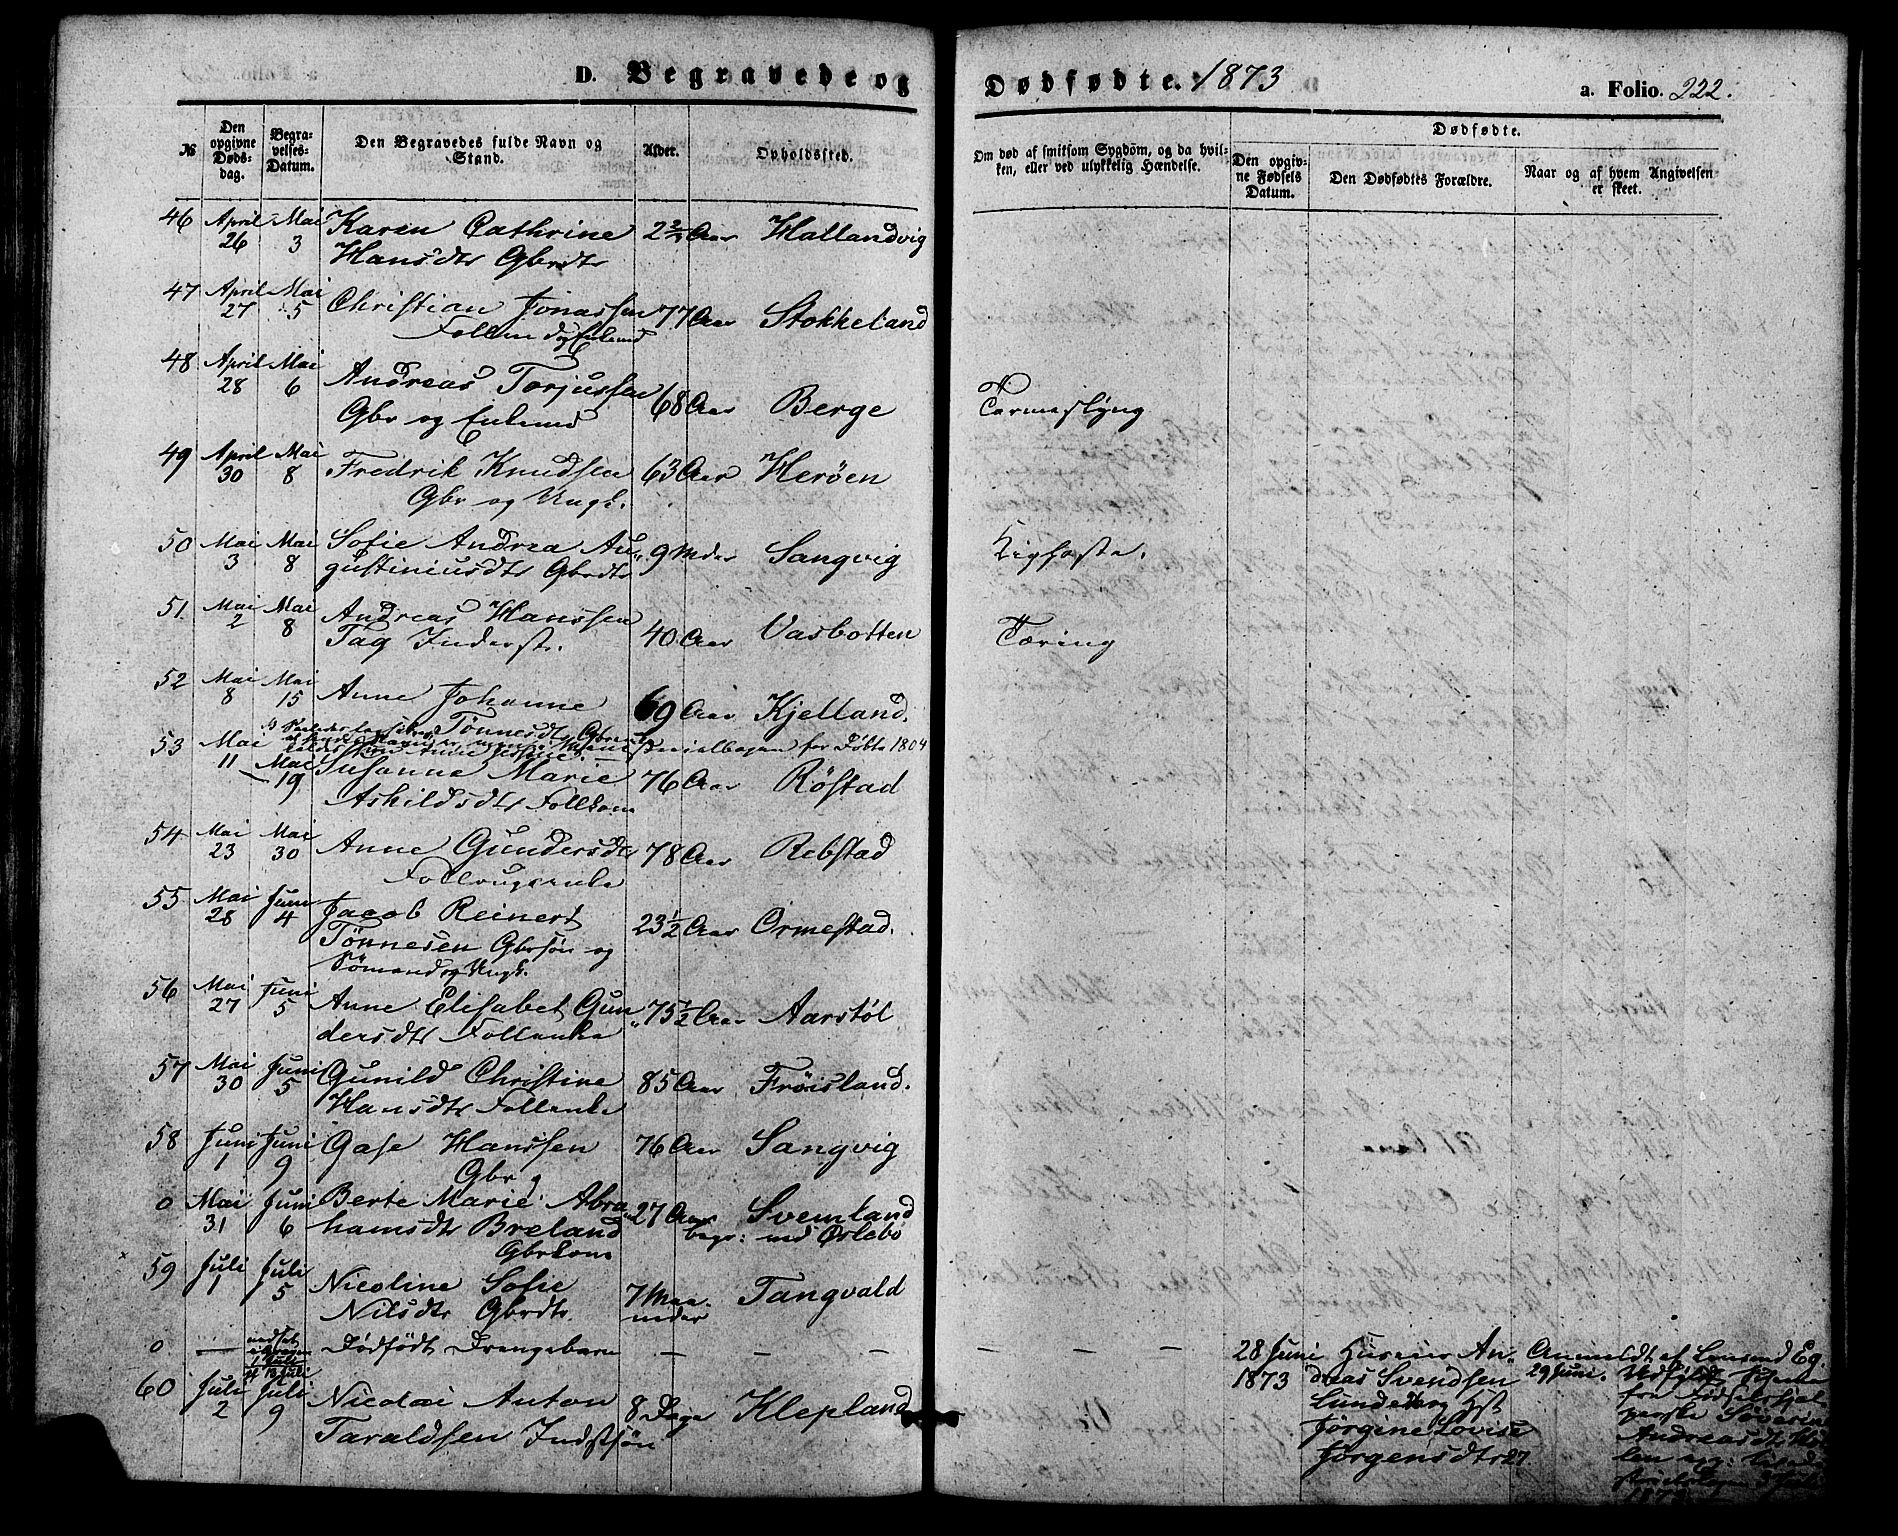 D. Begravede og Dødfødte. 1873 a. Folio. 222.
№
Den opgivne Døds-dag.
Begra-velses-Datum.
Den Begravedes fulde Navn og Stand.
Alder.
Opholdssted.
Om død af smitsom Sygdom, og da hvil-
ken, eller ved ulykkelig Hændelse.
Dødfødte.
Den opgiv-
ne Fødsels
Datum.
Den Dødfødtes Forældre.
Naar og af hvem Angivelsen
er skeet.
46 April 26 Mai 3 Karen Cathrine 2 Aar Hallandvig
Hansdtr Gbrdtr
47 April 27 Mai 5 Christian Jonassen 77 Aar Stokkeland
48 April 28 Mai 6 Andreas Torjussen 68 Aar Berge
Gbr og Enkemd
49 April 30 Mai 8 Fredrik Knudsen 63 Aar Herøen
Gbr og Ungk.
50 Mai 3 Mai 8 Sofie Andrea Au- 9 Mdr Sangvig Kighoste.
gustiniusdtr Gbrdtr
51. Mai 2 Mai 8 Andreas Hanssen 40 Aar Vasbotten Tæring
Tag Inderst.
52 Mai 8 Mai 15 Anne Johanne 69 Aar Kjelland.
Tønnesdtr
for Døbte 1804
53 Mai 11 Mai 19 Susanne Marie 76 Aar Röstad
Askildsdtr
54 Mai 23 Mai 30 Anne Gundersdtr 78 Aar Rebstad
55 Mai 28 Juni 4 Jacob Reinert 23½ Aar Ormestad.
Tönnesen Gbrsön og
Sömand og Ungk.
56 Mai 27 Juni 5 Anne Elisabet Gun- 75½ Aar Aarstøl
dersdtr Follenke
57 Mai 30 Juni 5 Gunild Christine 85 Aar Fröisland.
Hansdtr Follenke
58 Juni 1 Juni 9 Gase Hanssen 76 Aar Sangvig
Gbr
0 Mai 31 Juni 6 Berte Marie Abra- 27 Aar Svemland
hamsdtr Breland begr: ved Øslebö
Gbrkone
59 Juli 1 Juli 5 Nicoline Sofie 7 Maa- Tangvald
Nilsdtr Gbrdtr. neder
0 — Dødfödt Drengebarn — — — — — 28 Juni
1873
An-
dreas Svendsen
Lunde og Hst
Jörgine Lovise
Jörgensdtr 27
Anmeldt af
29 Juni.
60 Juli 2 Juli 9 Nicolai Anton 8 Dage Klepland
Taraldsen Indstsön